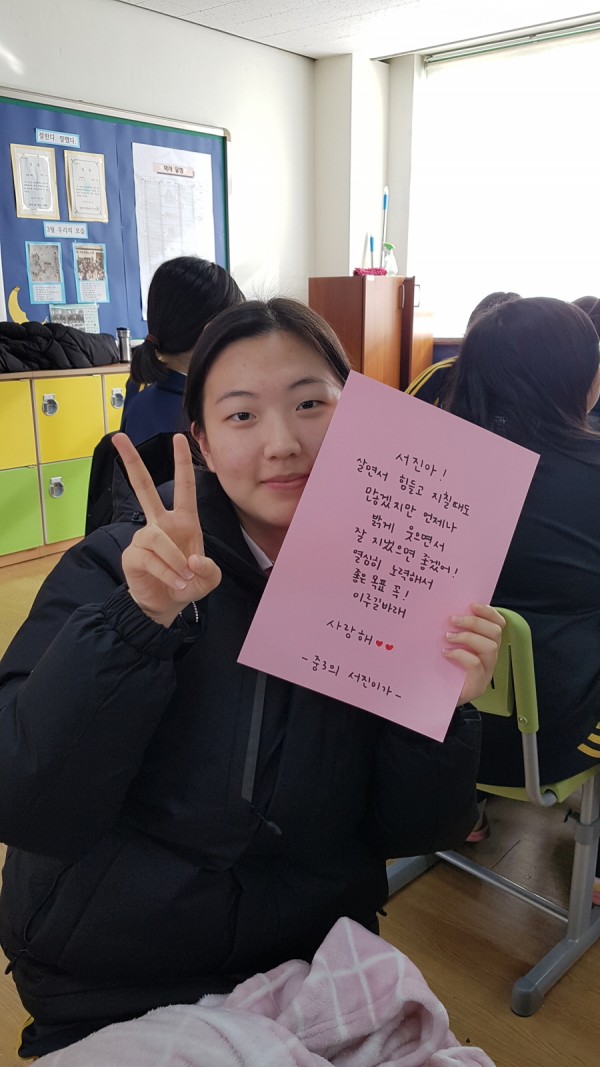 잘한다 잘했다
3월 우리의 모습
서진아!
살면서 힘들고 지칠때도
많겠지만 언제나
밝게 웃으면서
잘 지냈으면 좋겠어!
열심히 노력해서
좋은 목표 꼭!
이루길바래
사랑해♥♥
-중3의 서진이가-